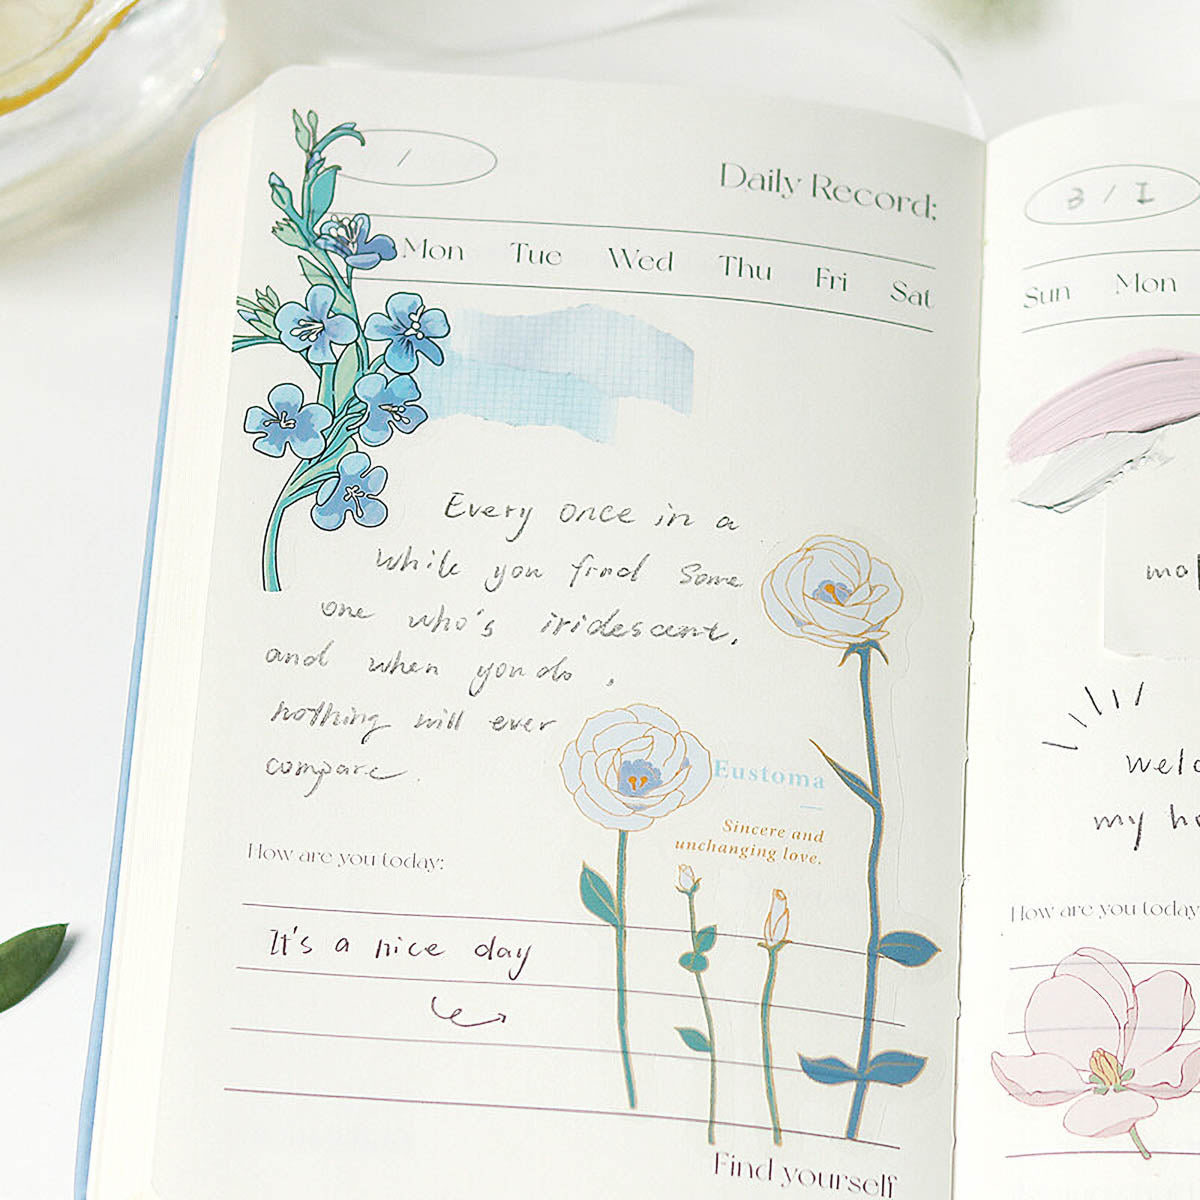 /
Daily Record:
Mon Tue Wed Thu Fri Sat
Every once in a
while you find some
one who's iridescent,
and when you do,
nothing will ever
compare.
Eustoma
Sincere and
unchanging love.
How are you today:
It's a nice day
Find yourself
3 / I
Sun Mon
my
How are you today